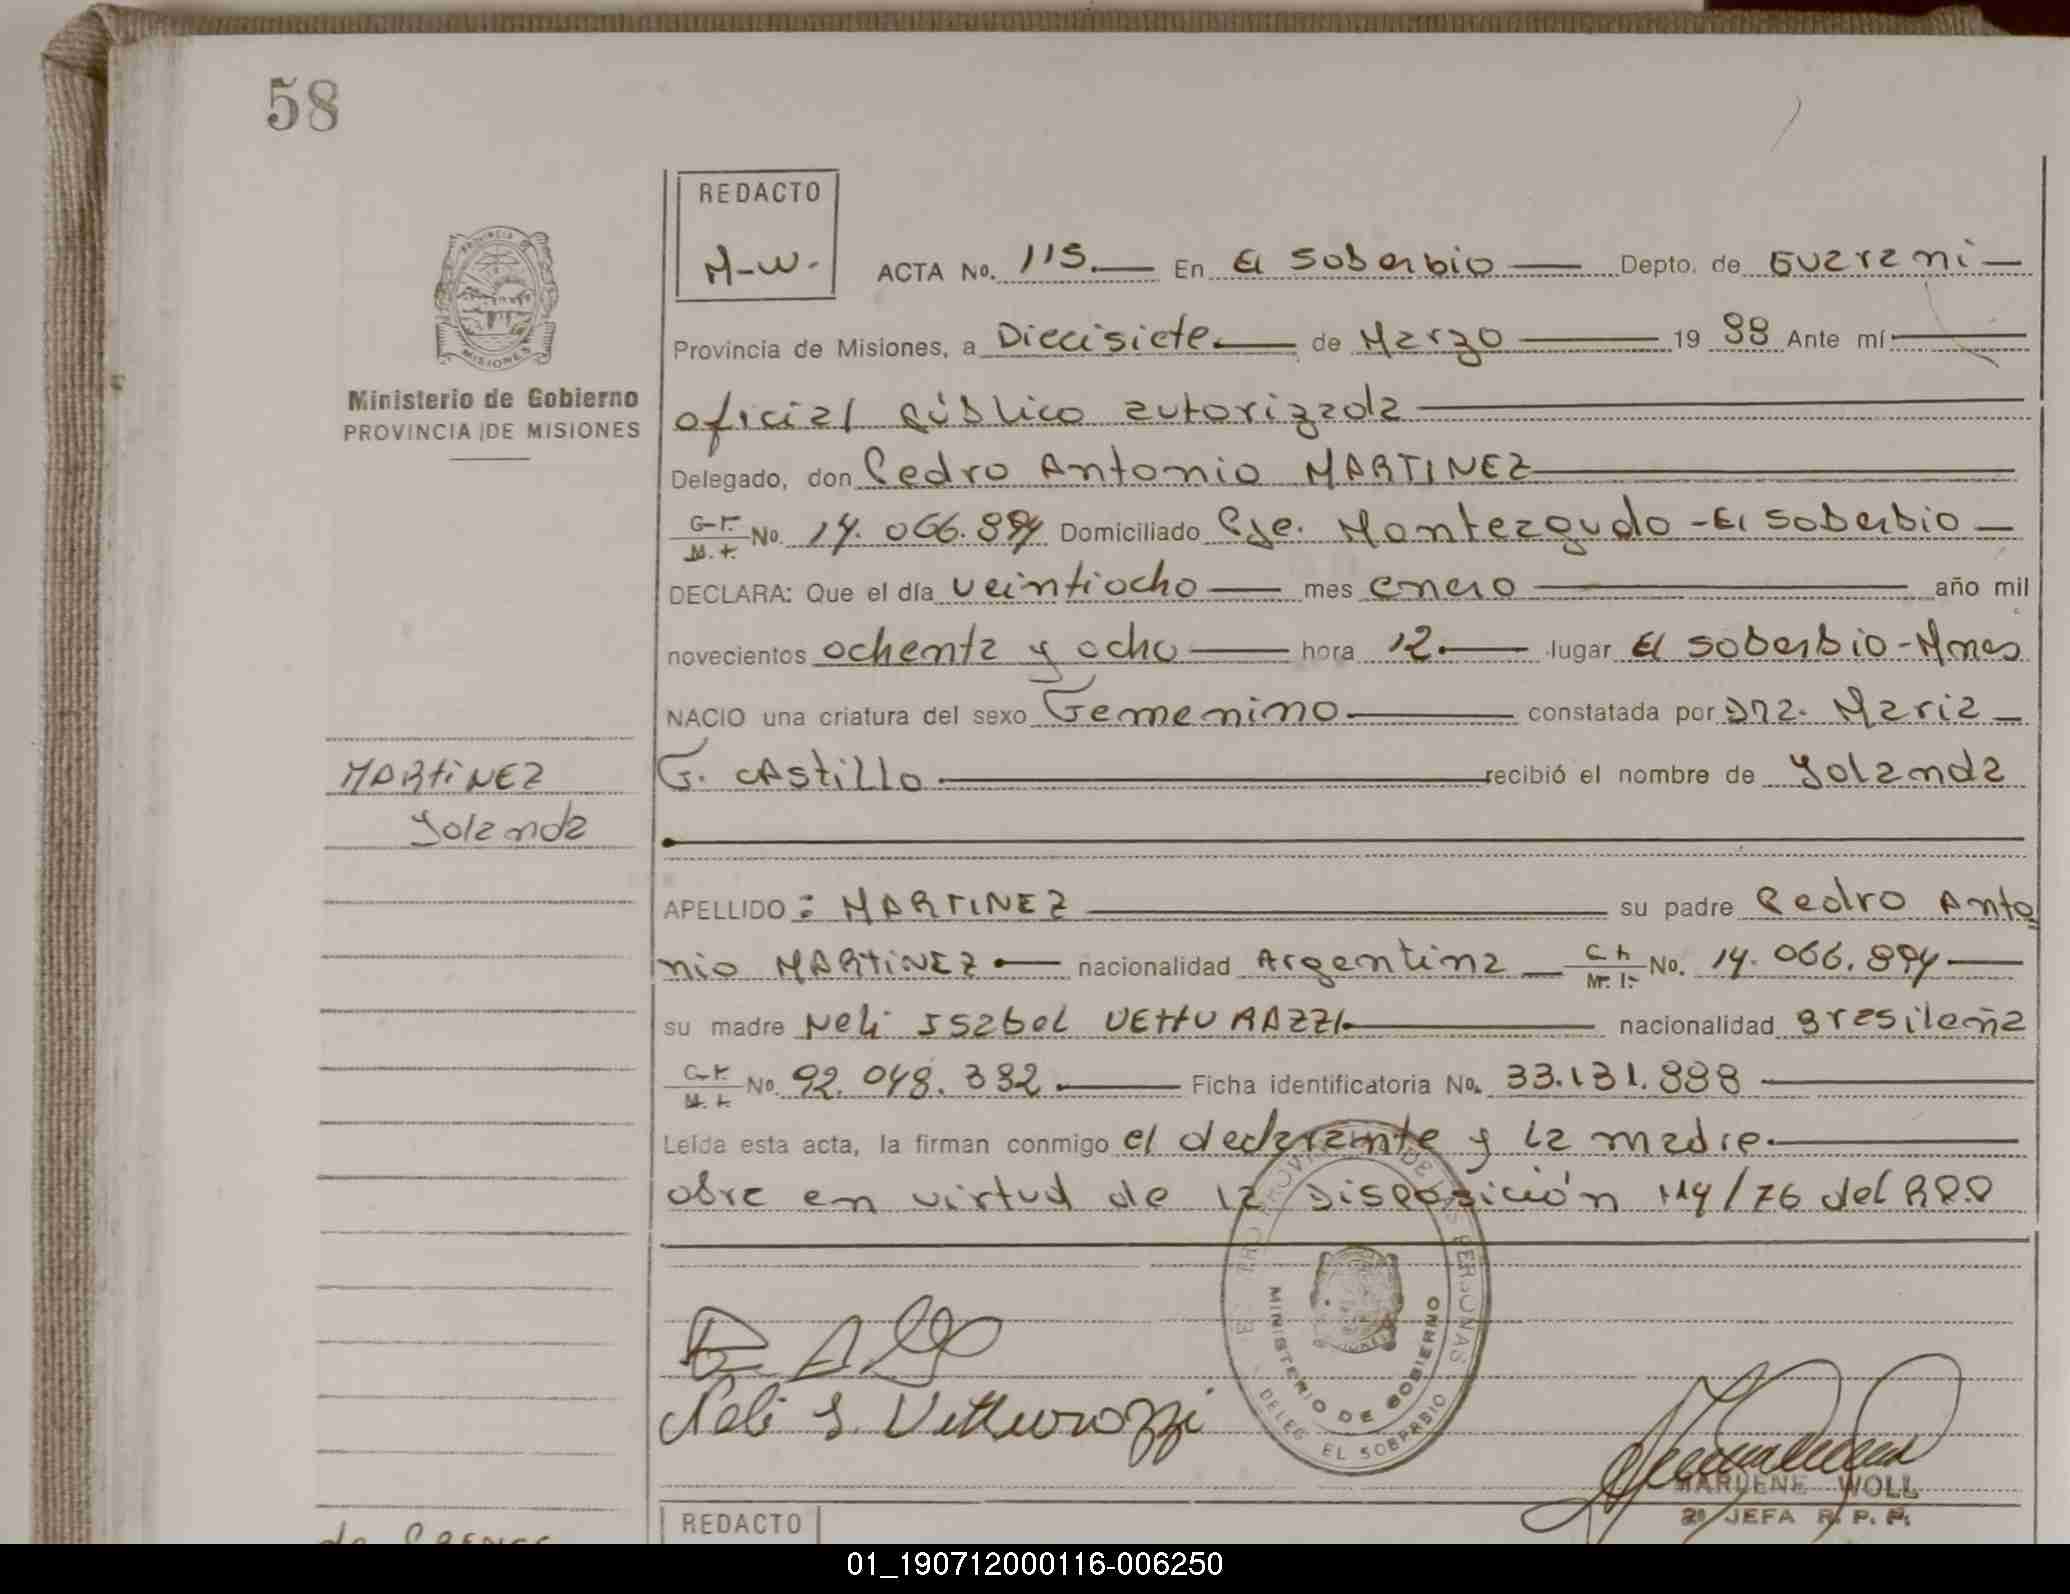 58
REDACTO
M-W.
ACTA No. 115. En El Soberbio Depto. de Guarani
Provincia de Misiones, a Diecisiete de Marzo 19 88 Ante mí
oficial público autorizada
Delegado, don Pedro Antonio MARTINEZ
C.I. M.I. No. 14.066.894 Domiciliado Pje. Monteagudo - El Soberbio
DECLARA: Que el día veintiocho mes enero año mil
novecientos ochenta y ocho hora 12. lugar El Soberbio - Mnes
NACIO una criatura del sexo Femenino constatada por Dra. Maria
G. CAstillo recibió el nombre de Yolanda
APELLIDO : MARTINEZ su padre Pedro Anto
nio MARTINEZ nacionalidad Argentina C.I. M.I. No. 14.066.894
su madre Neli Isabel VETTURAZZI nacionalidad Brasileña
C.I. M.I. No. 92.048.382. Ficha identificatoria No. 33.131.888
Leída esta acta, la firman conmigo el declarante y la madre.
obre en virtud de la Disposición 114/76 del R.P.P
PROVINCIA DE MISIONES
Ministerio de Gobierno
PROVINCIA DE MISIONES
MARTINEZ
Yolanda
Neli I. Vetturazzi
PROVINCIAL DE LAS PERSONAS
MINISTERIO DE GOBIERNO
DELEG. EL SOBERBIO
MARLENE WOLL
2º JEFA R. P. P.
REDACTO
01_190712000116-006250